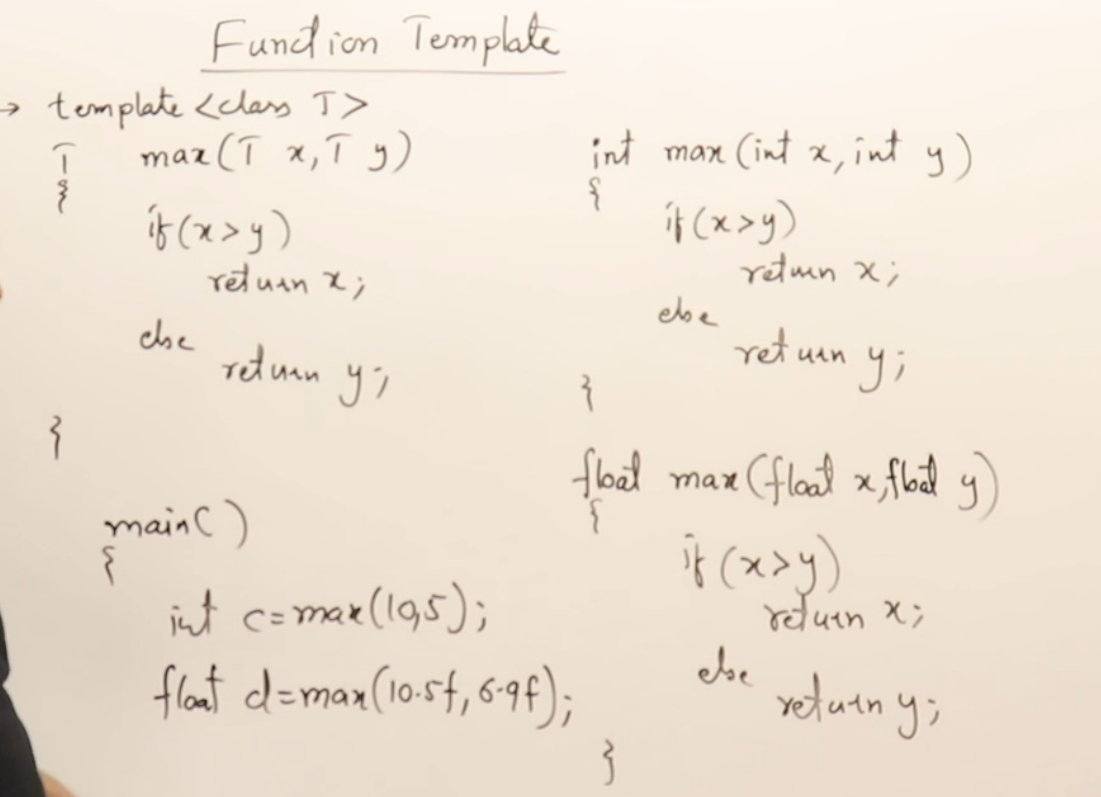 Function Template
→ template <class T>
T max(T x, T y)
{
if(x>y)
return x;
else
return y;
}
main()
{
int c=max(10,5);
float d=max(10.5f, 6.9f);
int max(int x, int y)
{
if(x>y)
return x;
else
return y;
}
float max(float x, float y)
{
if (x>y)
return x;
else
return y;
}